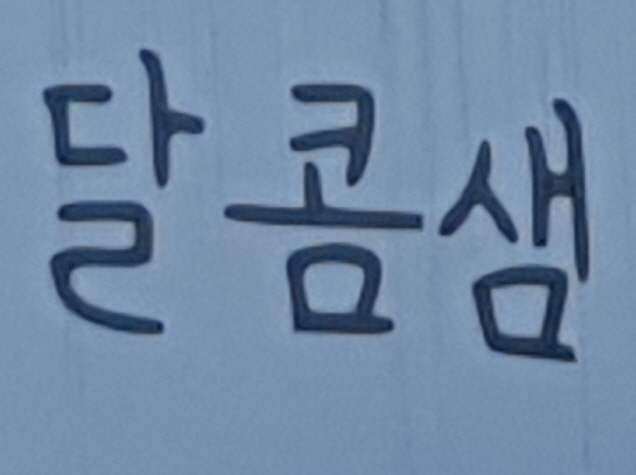 달콤샘